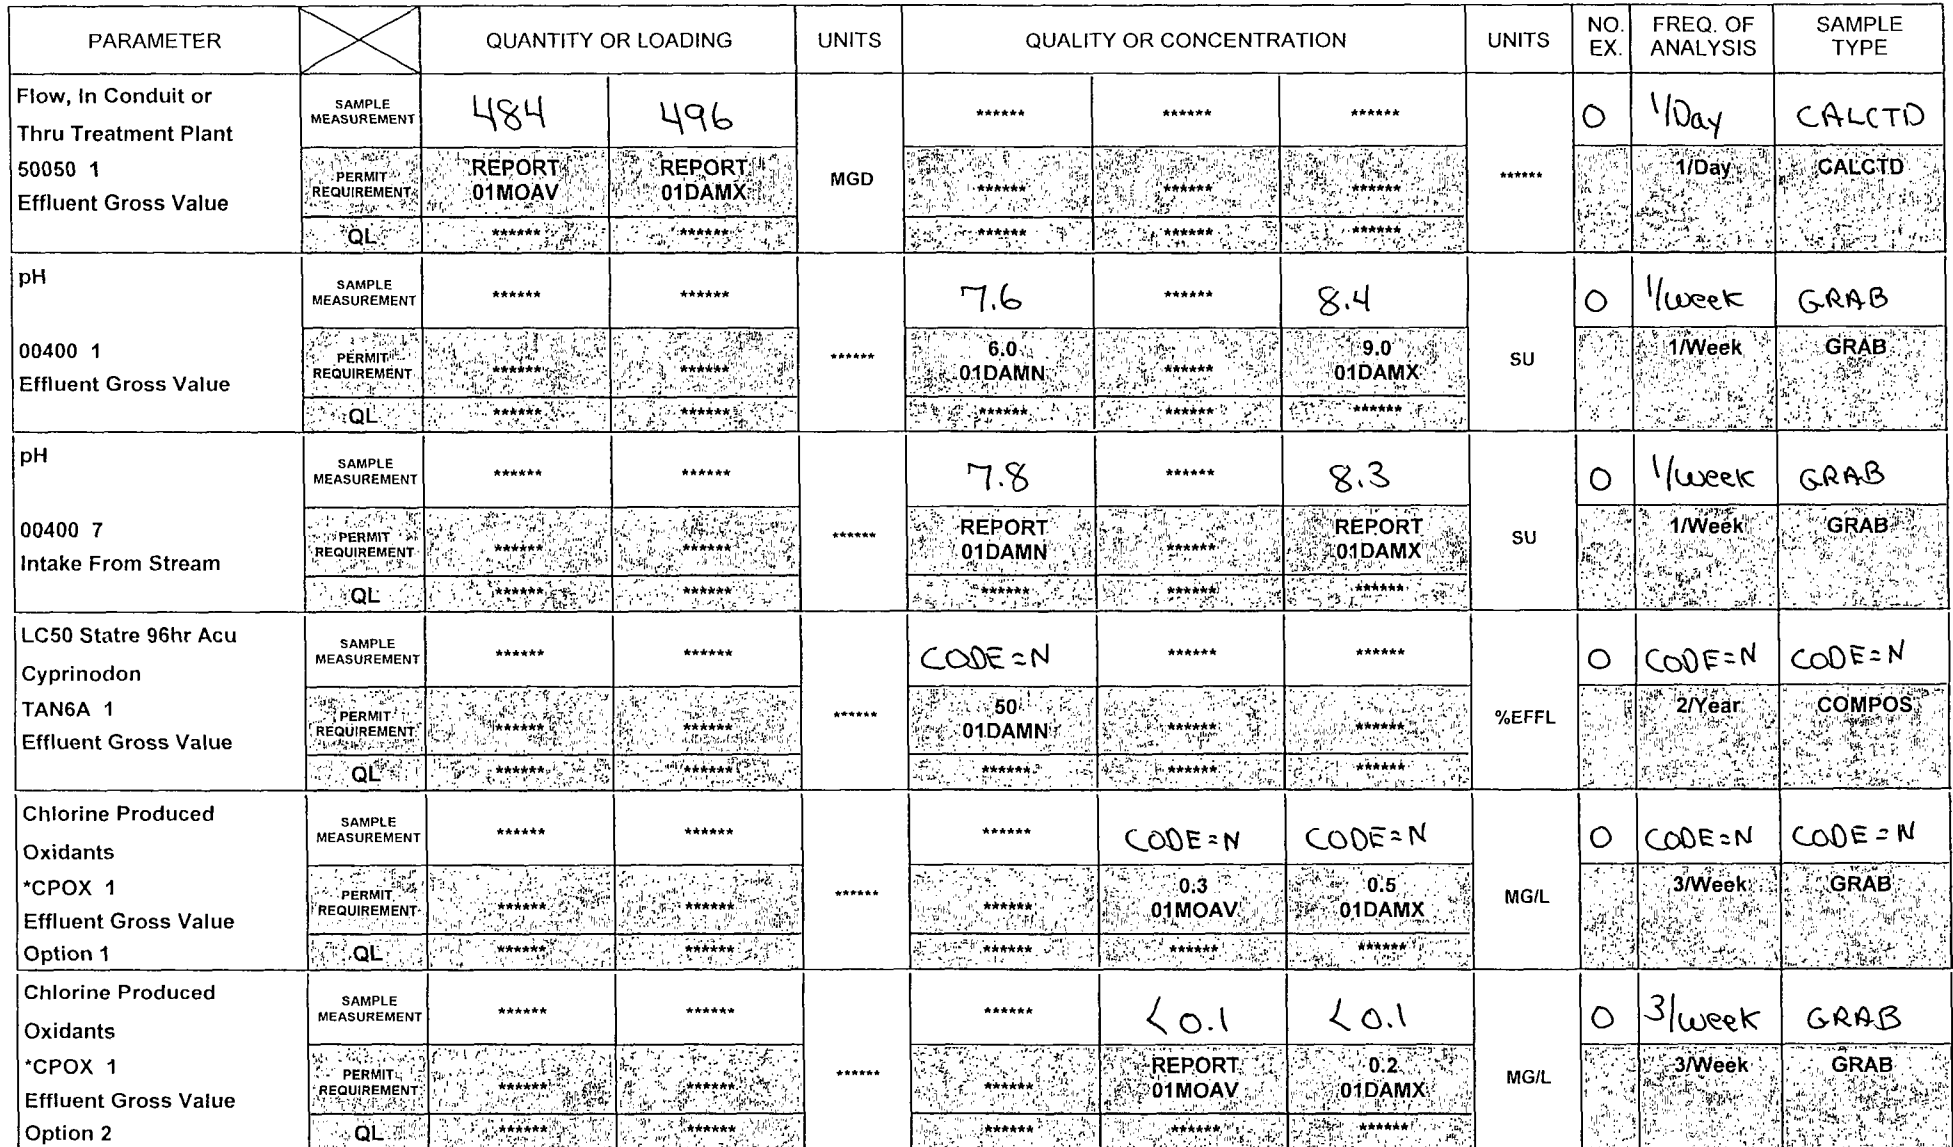 PARAMETER QUANTITY OR LOADING UNITS QUALITY OR CONCENTRATION UNITS NO. EX. FREQ. OF ANALYSIS SAMPLE TYPE
Flow, In Conduit or
Thru Treatment Plant
50050 1
Effluent Gross Value
SAMPLE MEASUREMENT 484 496 ****** ****** ****** 0 1/Day CALCTD
PERMIT REQUIREMENT REPORT 01MOAV REPORT 01DAMX MGD ****** ****** ****** ****** 1/Day CALCTD
QL ****** ****** ****** ****** ******
pH
00400 1
Effluent Gross Value
SAMPLE MEASUREMENT ****** ****** 7.6 ****** 8.4 0 1/week GRAB
PERMIT REQUIREMENT ****** ****** ****** 6.0 01DAMN ****** 9.0 01DAMX SU 1/Week GRAB
QL ****** ****** ****** ****** ******
pH
00400 7
Intake From Stream
SAMPLE MEASUREMENT ****** ****** 7.8 ****** 8.3 0 1/week GRAB
PERMIT REQUIREMENT ****** ****** ****** REPORT 01DAMN ****** REPORT 01DAMX SU 1/Week GRAB
QL ****** ****** ****** ****** ******
LC50 Statre 96hr Acu
Cyprinodon
TAN6A 1
Effluent Gross Value
SAMPLE MEASUREMENT ****** ****** CODE=N ****** ****** 0 CODE=N CODE=N
PERMIT REQUIREMENT ****** ****** ****** 50 01DAMN ****** ****** %EFFL 2/Year COMPOS
QL ****** ****** ****** ****** ******
Chlorine Produced
Oxidants
*CPOX 1
Effluent Gross Value
Option 1
SAMPLE MEASUREMENT ****** ****** ****** CODE=N CODE=N 0 CODE=N CODE=N
PERMIT REQUIREMENT ****** ****** ****** ****** 0.3 01MOAV 0.5 01DAMX MG/L 3/Week GRAB
QL ****** ****** ****** ****** ******
Chlorine Produced
Oxidants
*CPOX 1
Effluent Gross Value
Option 2
SAMPLE MEASUREMENT ****** ****** ****** <0.1 <0.1 0 3/week GRAB
PERMIT REQUIREMENT ****** ****** ****** ****** REPORT 01MOAV 0.2 01DAMX MG/L 3/Week GRAB
QL ****** ****** ****** ****** ******